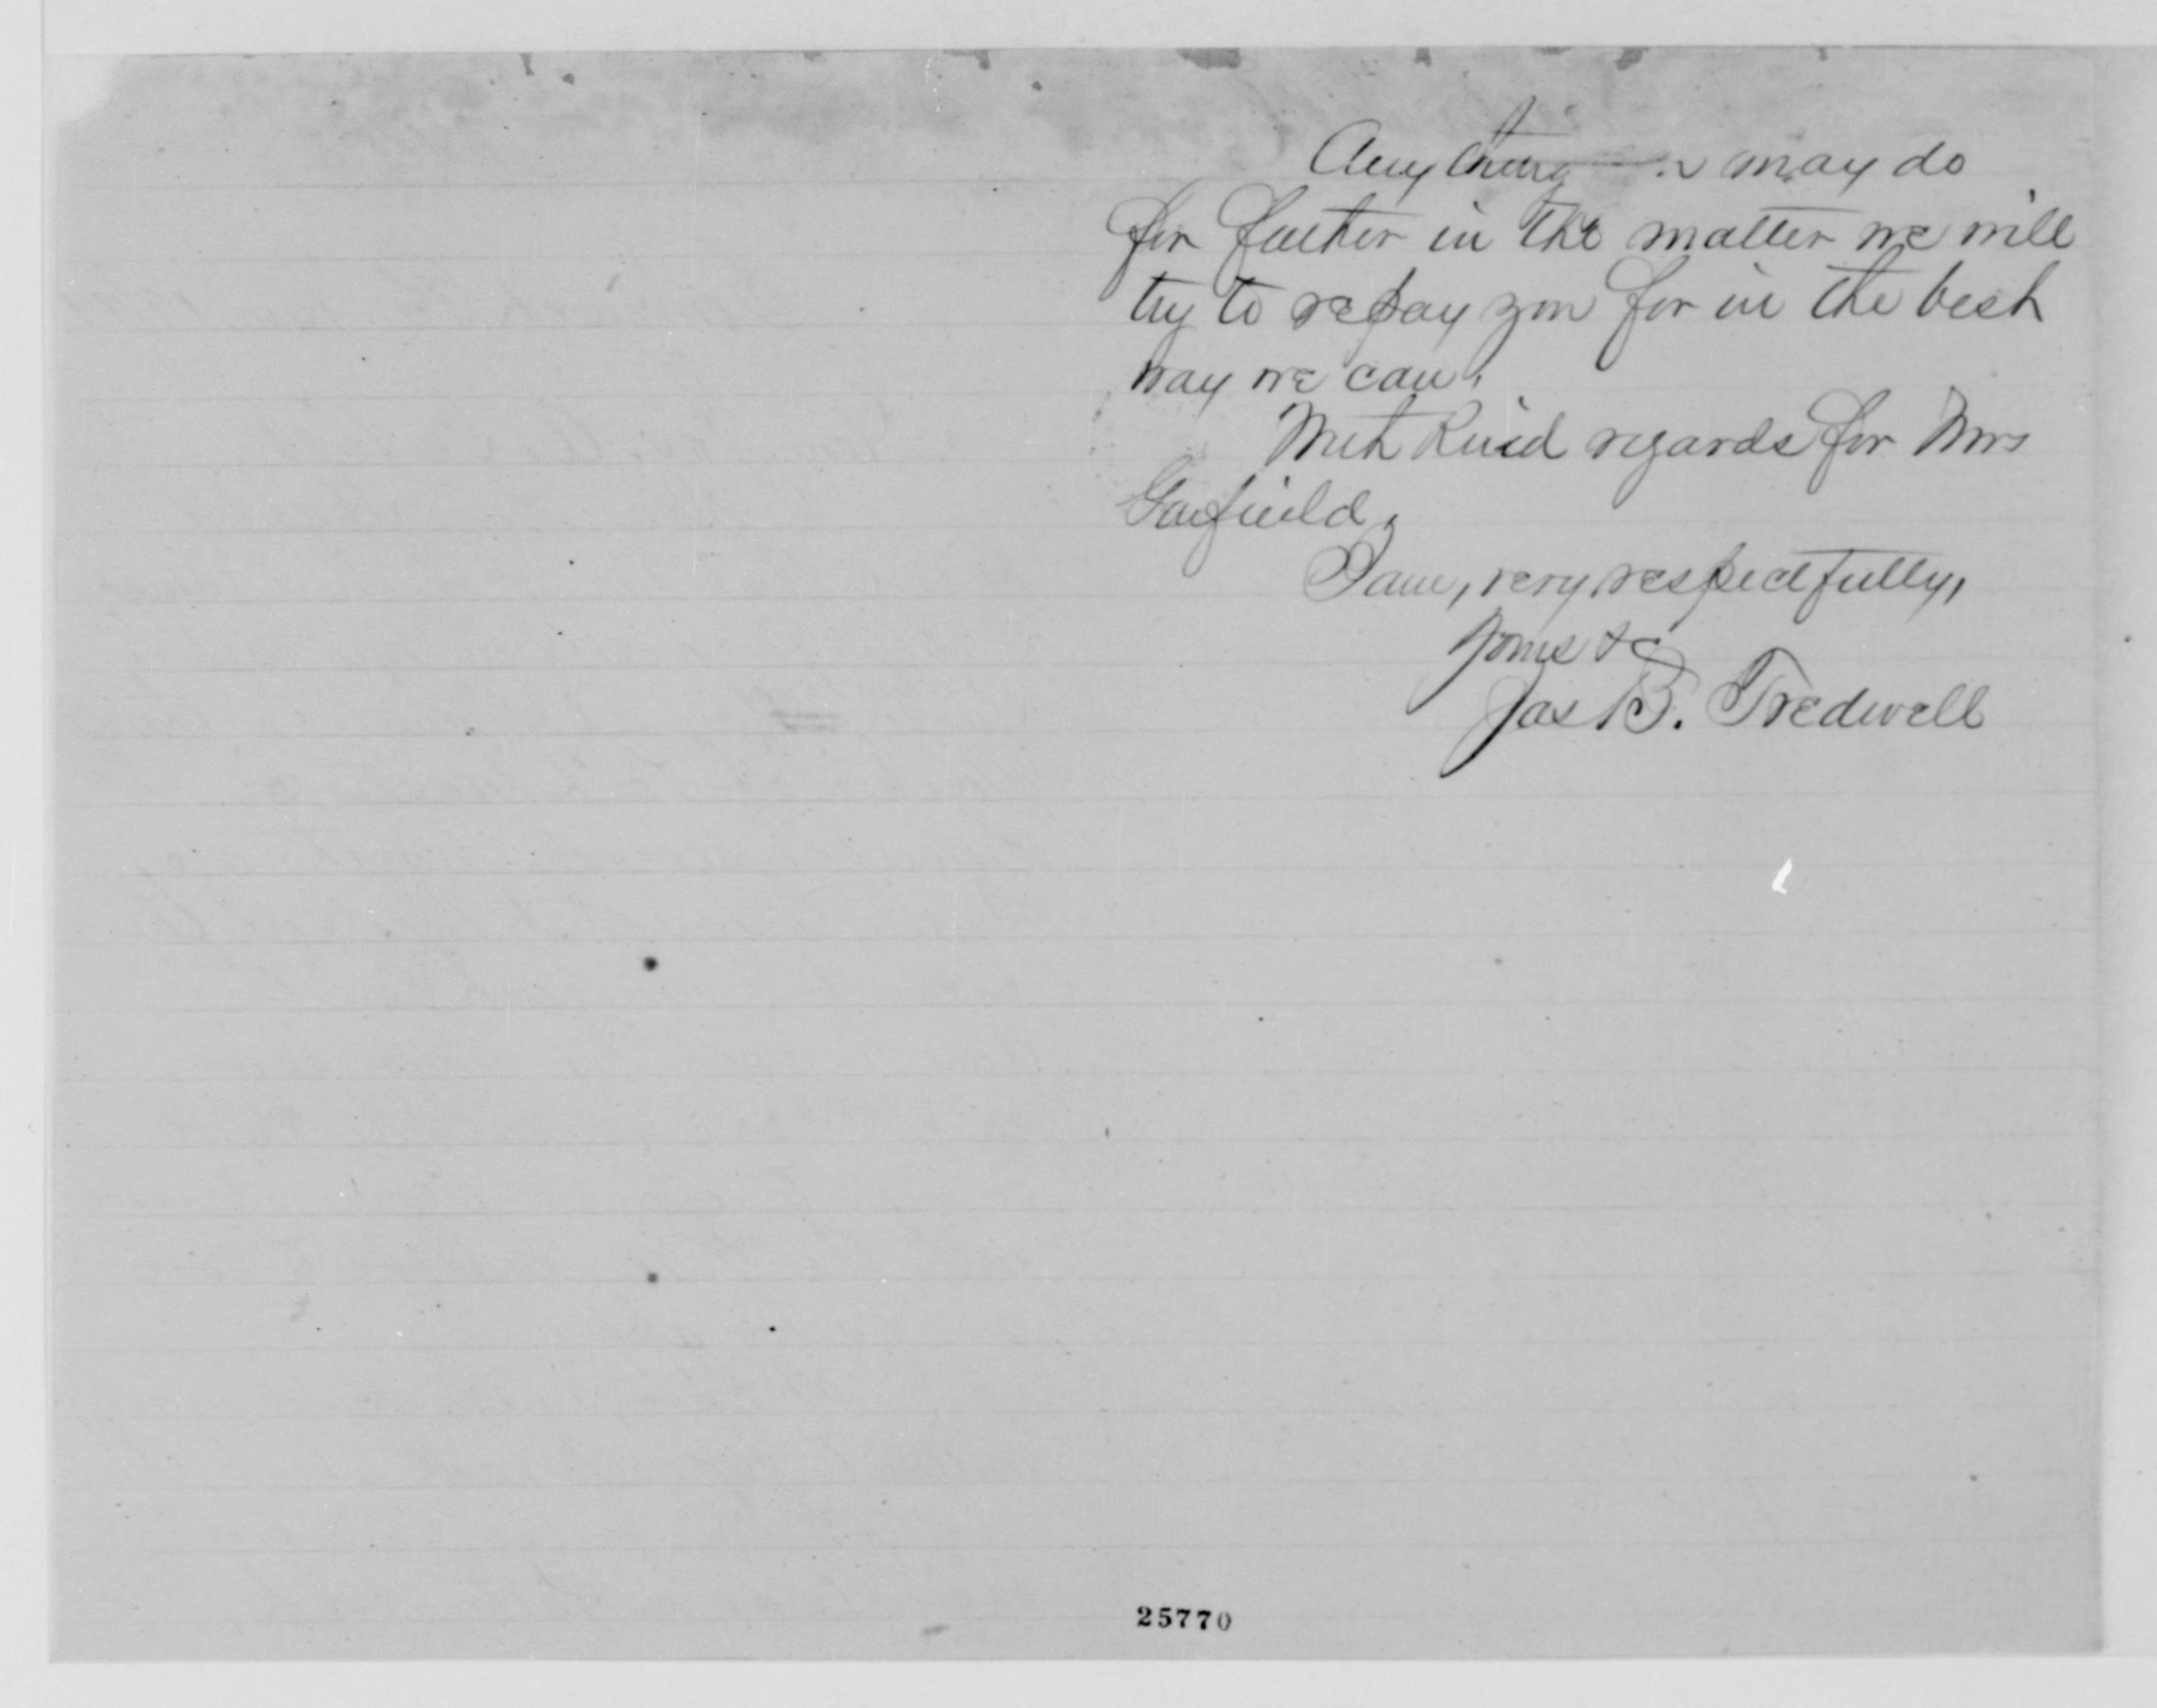 Anything may do
for father in the matter we will
try to repay you for in the best
way we can.
With kind regards for Mrs
Garfield,
I am, very respectfully,
Yours &c
Jas B. Tredwell
25770